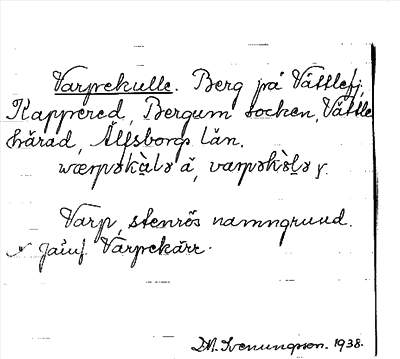 Varpekulle. Berg på Vättlefj.
Kappered, Bergum socken, Vättle
härad, Älfsborgs län.
værpəkùlə ä, varpəkòlə y.
Varp, stenrös namngrund.
Jämf Varpekärr.
Dr. Svenungson. 1938.